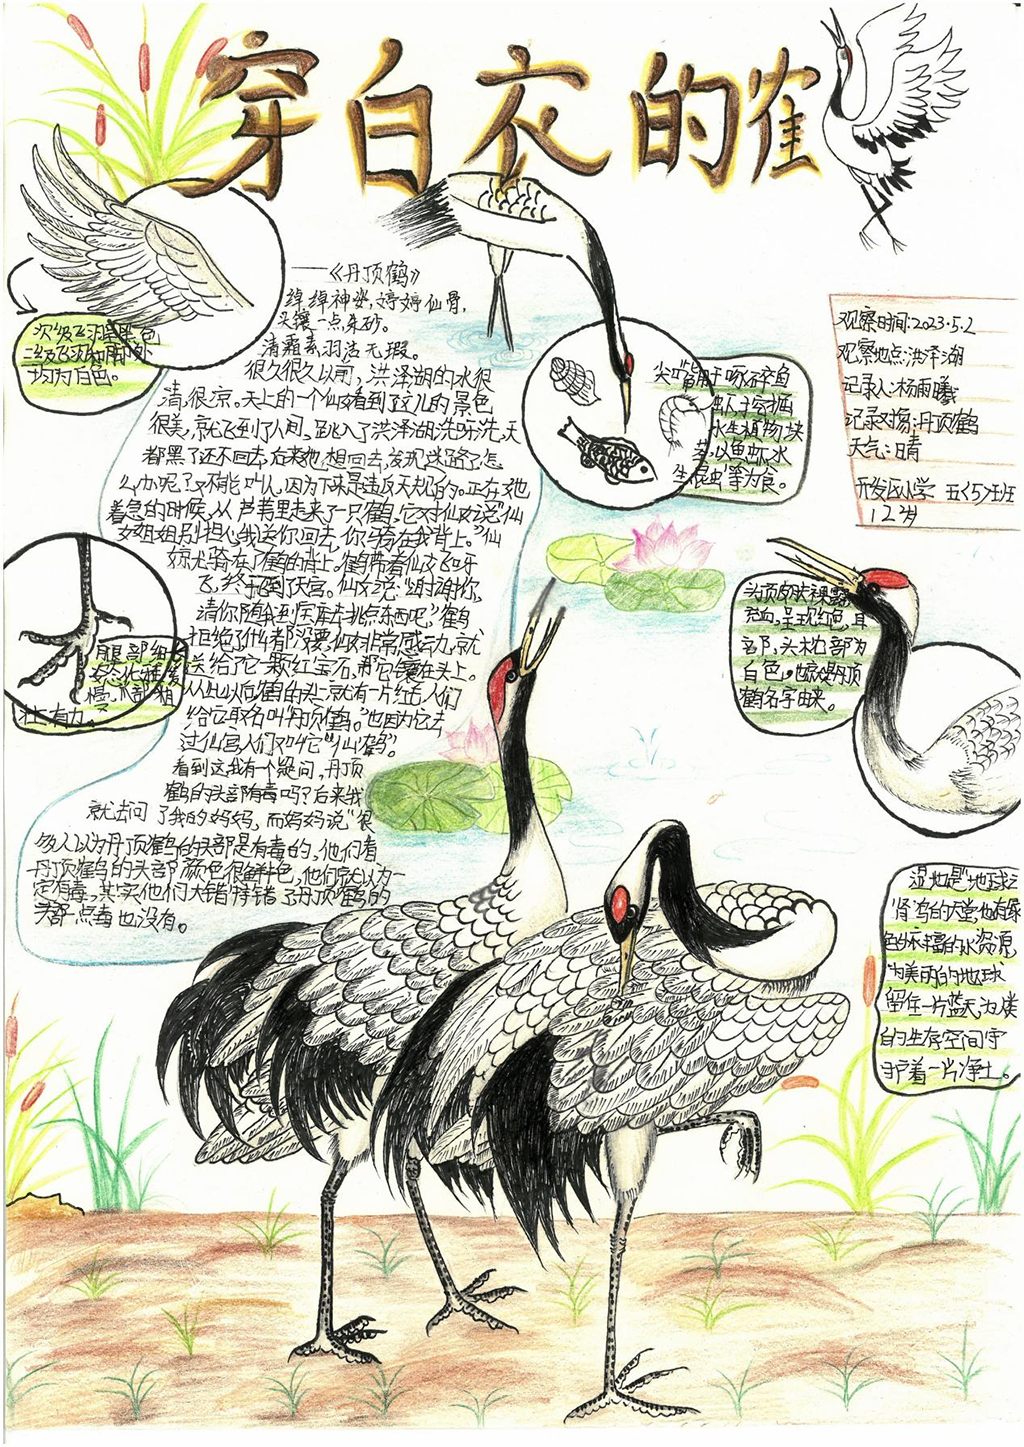 穿白衣的隺
——《丹顶鹤》
绰绰神姿,婷婷仙骨,
头镶一点朱砂。
清霜素羽洁无瑕。
很久很久以前,洪泽湖的水很
清,很凉。天上的一个仙女看到了这儿的景色
很美,就飞到了人间,跳入了洪泽湖洗呀洗,天
都黑了还不回去,后来她想回去,发现迷路了怎
么办呢?又不能叫人,因为下来是违反天规的。正在她
着急的时候,从芦苇里走来了一只鹤,它对仙女说“仙
女姐姐别担心我送你回去,你骑在我背上。”仙
女就骑在了鹤的背上,鹤带着仙女飞呀
飞,终于飞到了天宫。仙女说:“谢谢你,
请你随我到宝库去挑点东西吧,”鹤
拒绝了什么都没要,仙女非常感动,就
送给了它一颗红宝石,帮它镶在头上。
从此以后鹤的头上就有一片红色,人们
给它取名叫“丹顶鹤。”也因为它去
过仙宫,人们又叫它“仙鹤”。
看到这我有一个疑问,丹顶
鹤的头部有毒吗?后来我
就去问了我的妈妈,而妈妈说“很
多人以为丹顶鹤的头部是有毒的,他们看
丹顶鹤的头部颜色很鲜色,他们就以为一
定有毒,其实他们大错特错了丹顶鹤的
头部一点毒也没有。
次级飞羽黑色
三级飞羽
均为白色。
尖嘴用于啄碎鱼
虫人于挖掘
水生植物块
茎,以鱼虾水
生昆虫等为食。
观察时间:2023.5.2
观察地点:洪泽湖
记录人:杨雨曦
记录对象:丹顶鹤
天气:晴
开发区小学 五(5)班
12岁
腿部细
姿态优雅缓
慢,爪部粗
壮有力。
头顶皮肤裸露
充血,呈现红色,耳
部,头枕部为
白色,也是丹顶
鹤名字由来。
湿地是“地球之
肾”鸟的天堂,也有绿
色的丰富的水资源,
为美丽的地球
留住一片蓝天,为
的生存空间守
护着一片净土。